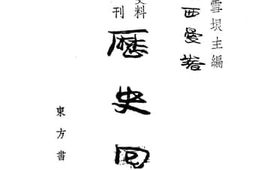 雪垠主編
西曼諾
料
刊
歷史回
東方書